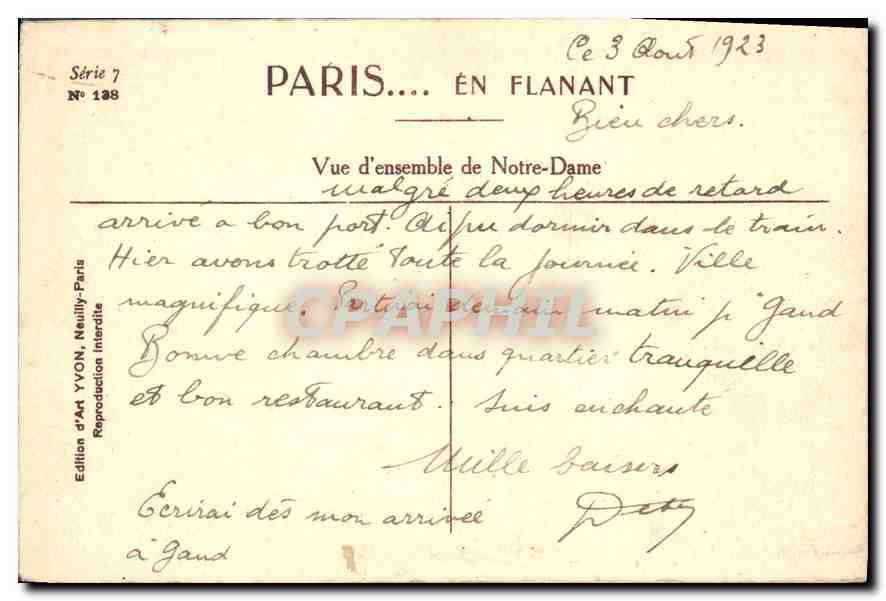 Série 7
N° 138
PARIS.... EN FLANANT
Vue d'ensemble de Notre-Dame
Ce 3 Aout 1923
Bien chers.
malgré deux heures de retard
arrivé a bon port. Ai pu dormir dans le train.
Hier avons trotté toute la journée. Ville
magnifique. Partirai demain matin pr Gand
Bonne chambre dans quartier tranquille
et bon restaurant. Suis enchanté
Mille baisers
Ecrirai dès mon arrivée
à Gand
Edition d'Art YVON, Neuilly-Paris
Reproduction Interdite
CPAPHIL